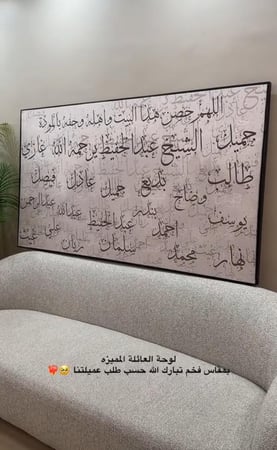 اللهم حصن هذا البيت واهله وحفه بالمودة
جميل الشيخ عبدالحفيظ رحمة الله غازي
طالب وضاح بديع جميل عادل فيصل
يوسف احمد بندر عبدالحفيظ عبدالله عبدالرحمن
نهار محمد سلمان ريان علي غيث
لوحة العائلة المميزه
بمقاس فخم تبارك الله حسب طلب عميلتنا 🥹❤️‍🔥